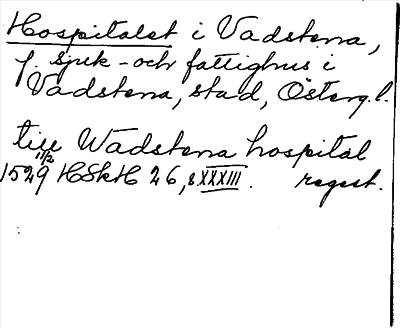 Hospitalet i Vadstena,
f. sjuk- och fattighus i
Vadstena, stad, Österg. l.
till Wadstena hospital
11/2
1529 HSkH 26, s XXXIII. regest.